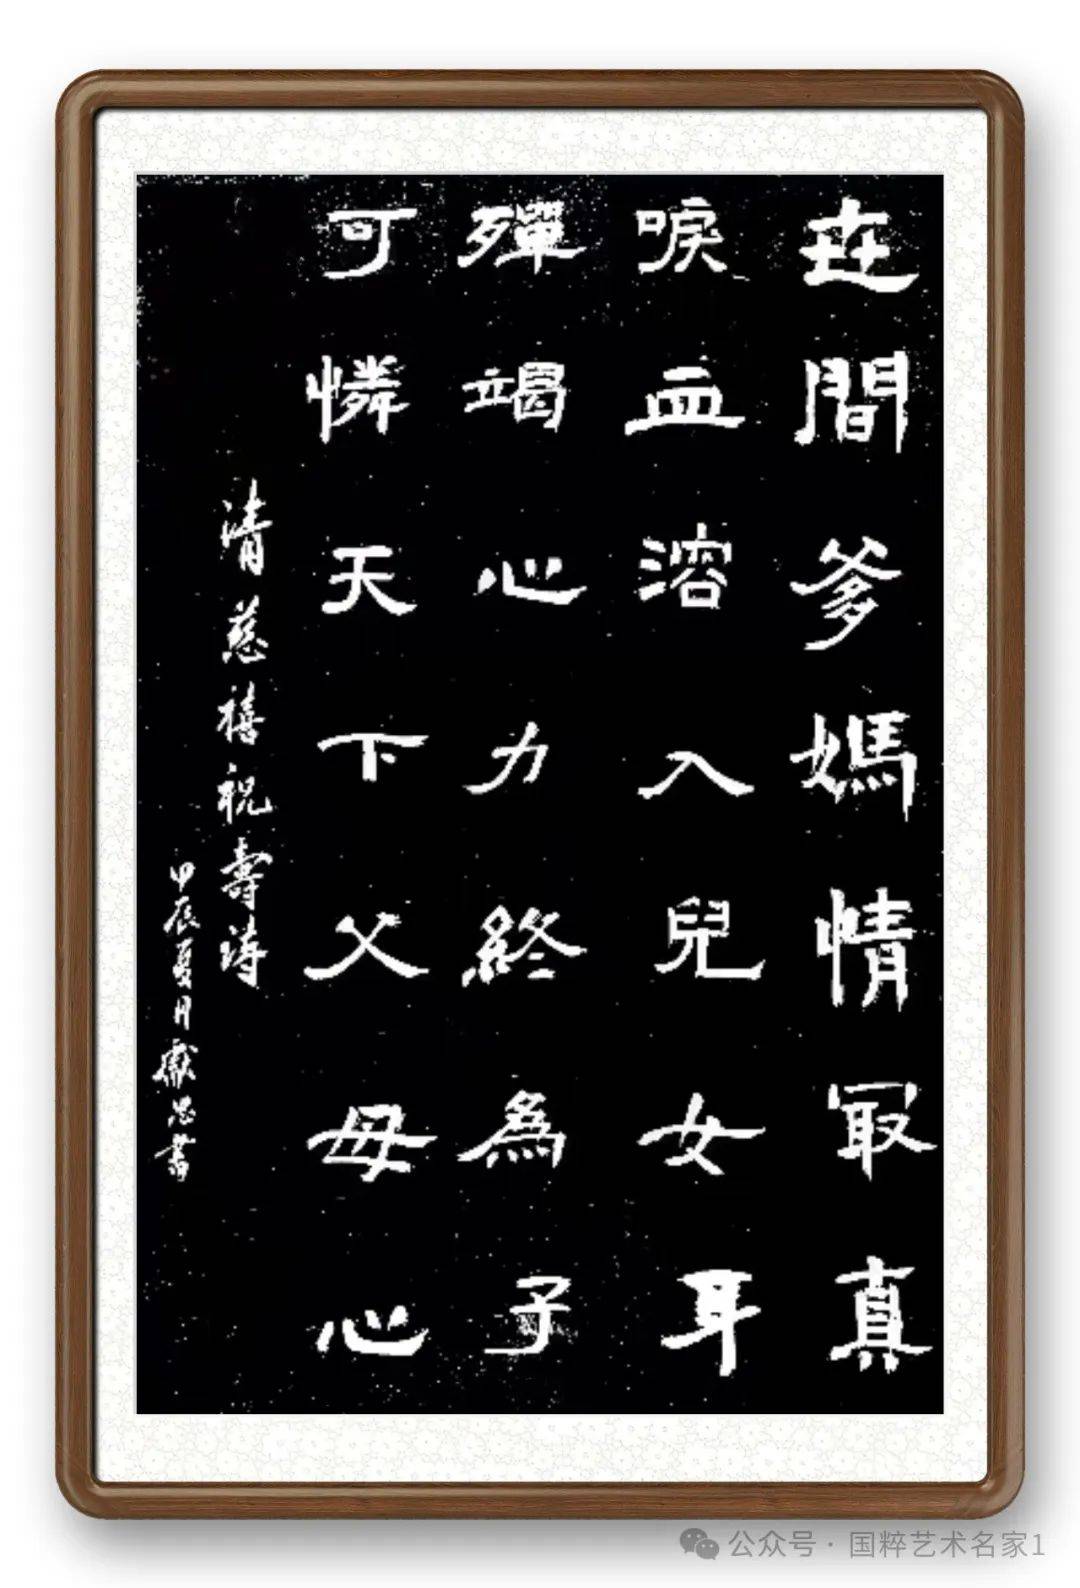 世間爹媽情冣真
唳血溶入兒女耳
殫竭心力終為子
可憐天下父母心
清慈禧祝壽詩
甲辰夏月獻忠書
公众号·国粹艺术名家1